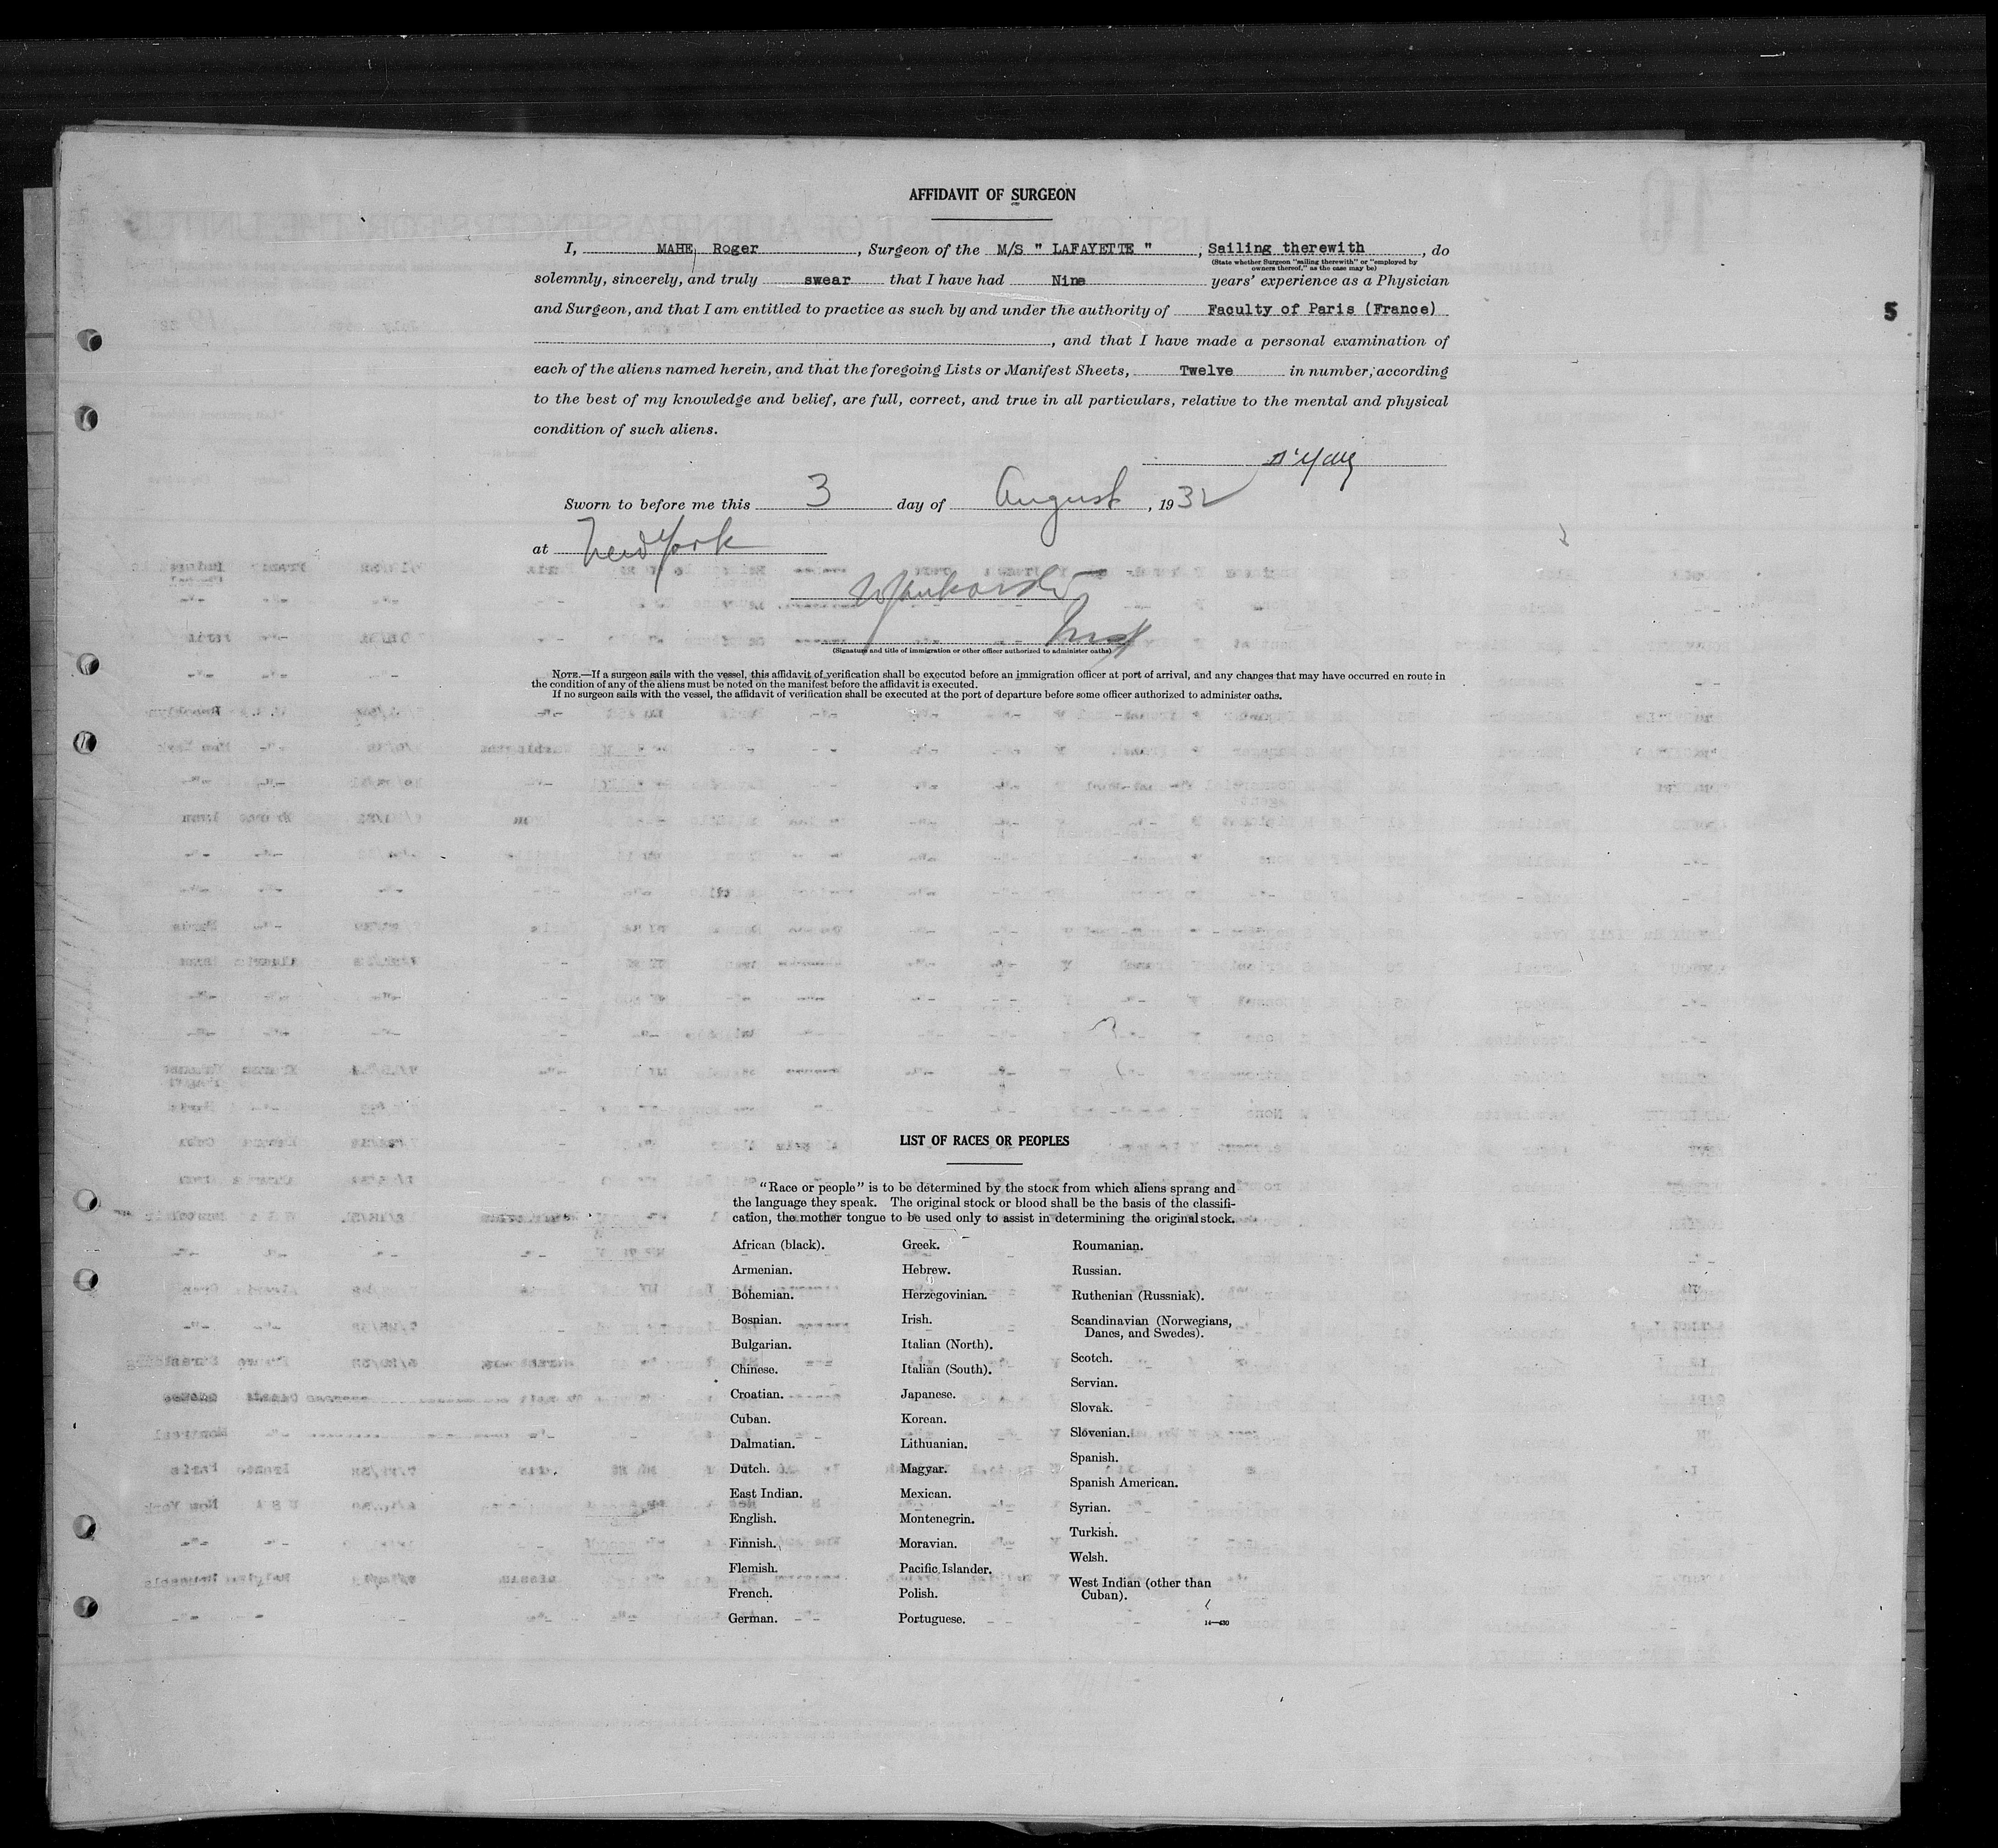 AFFIDAVIT OF SURGEON
I, MAHE, Roger, Surgeon of the M/S " LAFAYETTE ", Sailing therewith, do
(State whether Surgeon "sailing therewith" or "employed by
owners thereof," as the case may be)
solemnly, sincerely, and truly swear that I have had Nine years' experience as a Physician
and Surgeon, and that I am entitled to practice as such by and under the authority of Faculty of Paris (France)
, and that I have made a personal examination of
each of the aliens named herein, and that the foregoing Lists or Manifest Sheets, Twelve in number, according
to the best of my knowledge and belief, are full, correct, and true in all particulars, relative to the mental and physical
condition of such aliens.
Sworn to before me this 3 day of August, 1932
at New York
(Signature and title of immigration or other officer authorized to administer oaths)
NOTE.—If a surgeon sails with the vessel, this affidavit of verification shall be executed before an immigration officer at port of arrival, and any changes that may have occurred en route in
the condition of any of the aliens must be noted on the manifest before the affidavit is executed.
If no surgeon sails with the vessel, the affidavit of verification shall be executed at the port of departure before some officer authorized to administer oaths.
5
LIST OF RACES OR PEOPLES
"Race or people" is to be determined by the stock from which aliens sprang and
the language they speak. The original stock or blood shall be the basis of the classifi-
cation, the mother tongue to be used only to assist in determining the original stock.
African (black).
Armenian.
Bohemian.
Bosnian.
Bulgarian.
Chinese.
Croatian.
Cuban.
Dalmatian.
Dutch.
East Indian.
English.
Finnish.
Flemish.
French.
German.
Greek.
Hebrew.
Herzegovinian.
Irish.
Italian (North).
Italian (South).
Japanese.
Korean.
Lithuanian.
Magyar.
Mexican.
Montenegrin.
Moravian.
Pacific Islander.
Polish.
Portuguese.
Roumanian.
Russian.
Ruthenian (Russniak).
Scandinavian (Norwegians,
Danes, and Swedes).
Scotch.
Servian.
Slovak.
Slovenian.
Spanish.
Spanish American.
Syrian.
Turkish.
Welsh.
West Indian (other than
Cuban).
14—430